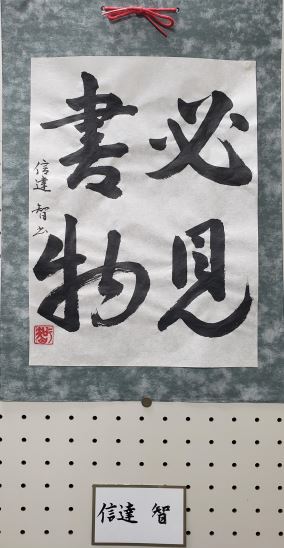 必見
書物
信達 智書
信達 智